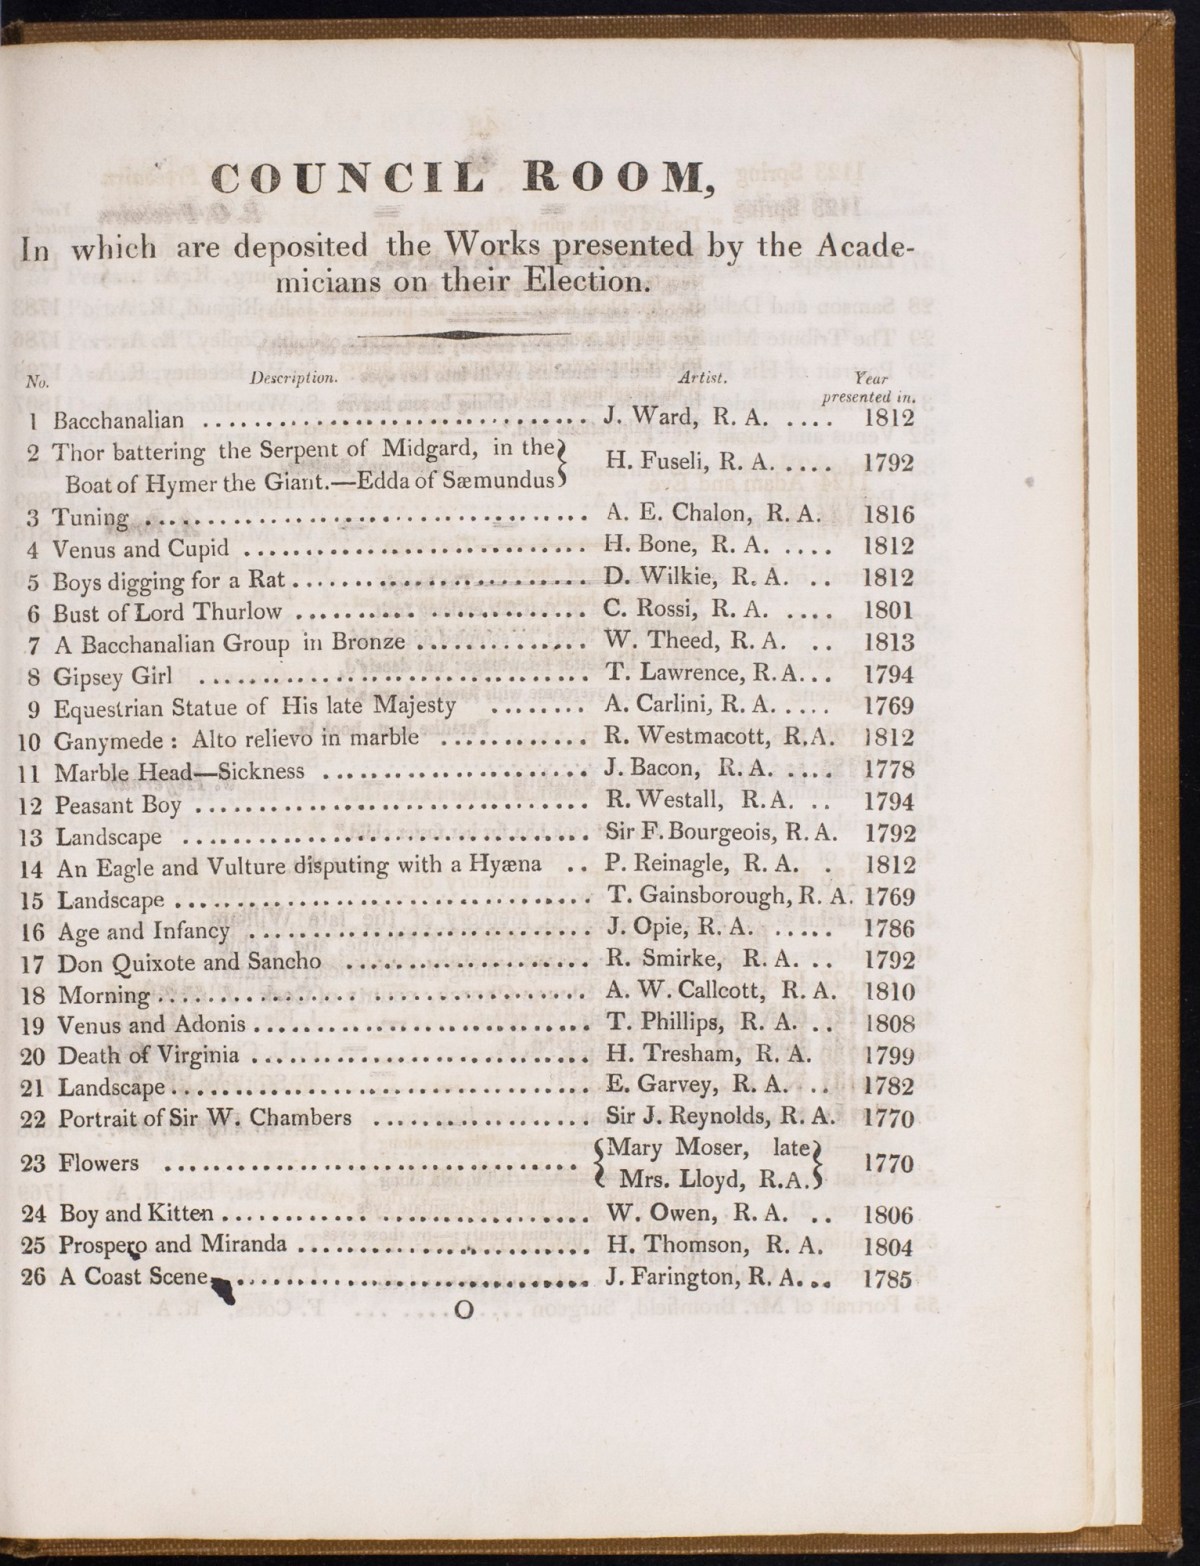 COUNCIL ROOM,
In which are deposited the Works presented by the Acade-
micians on their Election.
No. Description. Artist. Year
presented in.
1 Bacchanalian ................................ J. Ward, R. A. .... 1812
2 Thor battering the Serpent of Midgard, in the
Boat of Hymer the Giant.—Edda of Sæmundus } H. Fuseli, R. A. ..... 1792
3 Tuning .................................... A. E. Chalon, R. A. 1816
4 Venus and Cupid ............................ H. Bone, R. A. .... 1812
5 Boys digging for a Rat ........................ D. Wilkie, R. A. .. 1812
6 Bust of Lord Thurlow ........................ C. Rossi, R. A. .... 1801
7 A Bacchanalian Group in Bronze .............. W. Theed, R. A. .. 1813
8 Gipsey Girl ................................ T. Lawrence, R. A. .. 1794
9 Equestrian Statue of His late Majesty ........ A. Carlini, R. A. .... 1769
10 Ganymede : Alto relievo in marble ............ R. Westmacott, R. A. 1812
11 Marble Head—Sickness ...................... J. Bacon, R. A. .... 1778
12 Peasant Boy ................................ R. Westall, R. A. .. 1794
13 Landscape ................................ Sir F. Bourgeois, R. A. 1792
14 An Eagle and Vulture disputing with a Hyæna .. P. Reinagle, R. A. . 1812
15 Landscape ................................ T. Gainsborough, R. A. 1769
16 Age and Infancy ............................ J. Opie, R. A. ..... 1786
17 Don Quixote and Sancho .................... R. Smirke, R. A. .. 1792
18 Morning .................................. A. W. Callcott, R. A. 1810
19 Venus and Adonis ............................ T. Phillips, R. A. .. 1808
20 Death of Virginia ............................ H. Tresham, R. A. 1799
21 Landscape .................................. E. Garvey, R. A. .. 1782
22 Portrait of Sir W. Chambers .................. Sir J. Reynolds, R. A. 1770
23 Flowers ................................ { Mary Moser, late
Mrs. Lloyd, R.A. } 1770
24 Boy and Kitten .............................. W. Owen, R. A. .. 1806
25 Prospero and Miranda ........................ H. Thomson, R. A. 1804
26 A Coast Scene .............................. J. Farington, R. A. .. 1785
O